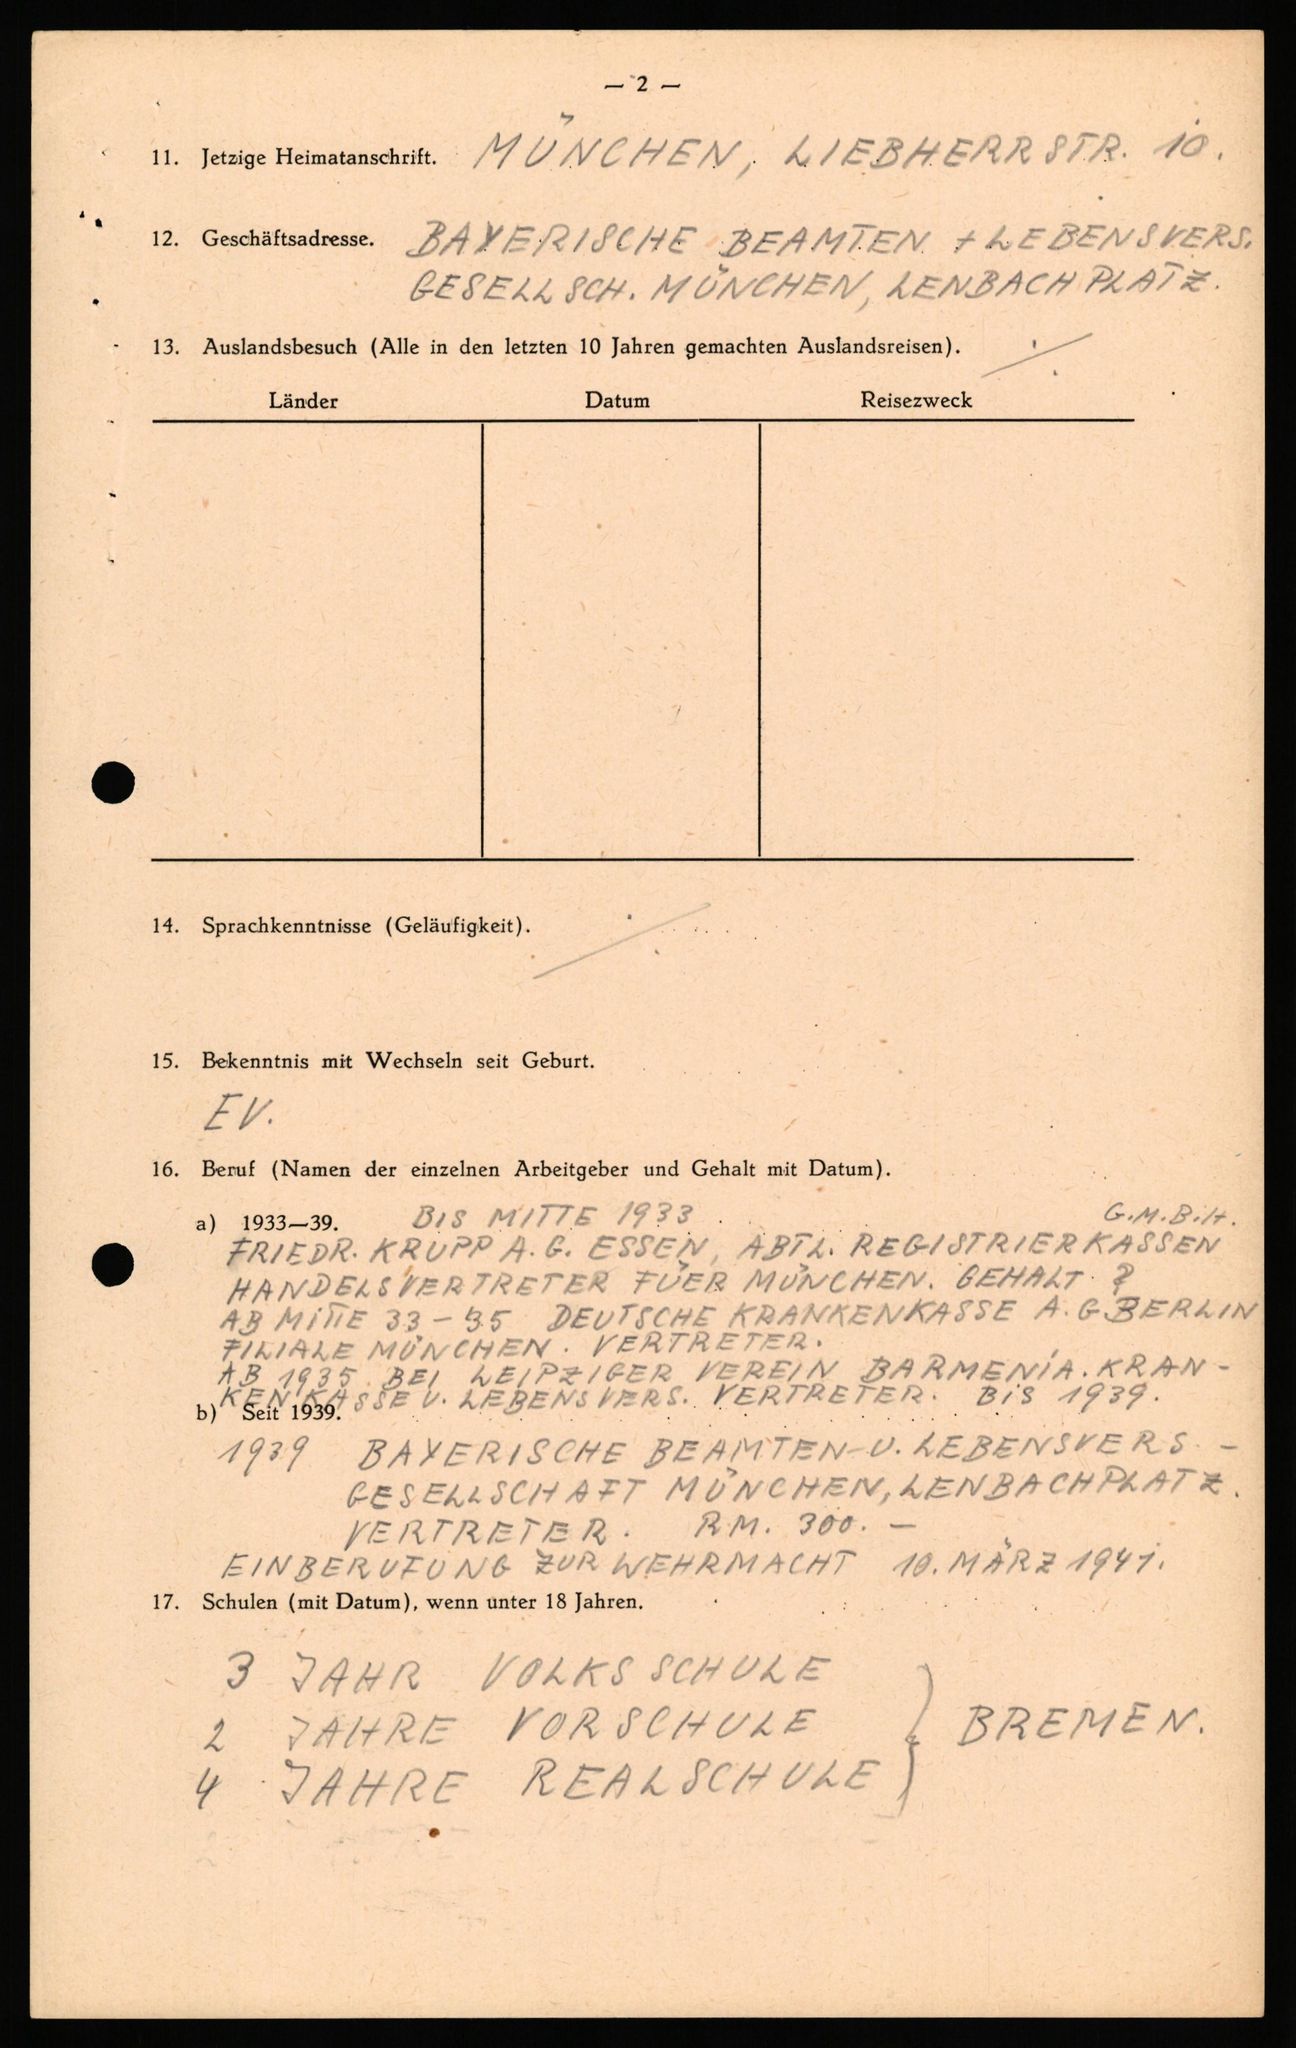 — 2 —
11. Jetzige Heimatanschrift. MÜNCHEN, LIEBHERRSTR. 10.
12. Geschäftsadresse. BAYERISCHE BEAMTEN + LEBENSVERS.
GESELLSCH. MÜNCHEN, LENBACHPLATZ.
13. Auslandsbesuch (Alle in den letzten 10 Jahren gemachten Auslandsreisen). ·/.
Länder Datum Reisezweck
14. Sprachkenntnisse (Geläufigkeit). ·/.
15. Bekenntnis mit Wechseln seit Geburt.
EV.
16. Beruf (Namen der einzelnen Arbeitgeber und Gehalt mit Datum).
a) 1933—39. BIS MITTE 1933. G.M.B.H.
FRIEDR. KRUPP A.G. ESSEN, ABTL. REGISTRIERKASSEN
HANDELSVERTRETER FÜER MÜNCHEN. GEHALT ?
AB MITTE 33 – 35 DEUTSCHE KRANKENKASSE A.G. BERLIN
FILIALE MÜNCHEN. VERTRETER.
AB 1935 BEI LEIPZIGER VEREIN BARMENIA. KRAN-
KENKASSE U. LEBENSVERS. VERTRETER. BIS 1939.
b) Seit 1939.
1939 BAYERISCHE BEAMTEN- U. LEBENSVERS.-
GESELLSCHAFT MÜNCHEN, LENBACHPLATZ.
VERTRETER. RM. 300.—
EINBERUFUNG ZUR WEHRMACHT 10. MÄRZ 1941.
17. Schulen (mit Datum), wenn unter 18 Jahren.
3 JAHR VOLKSSCHULE
2 JAHRE VORSCHULE } BREMEN.
4 JAHRE REALSCHULE